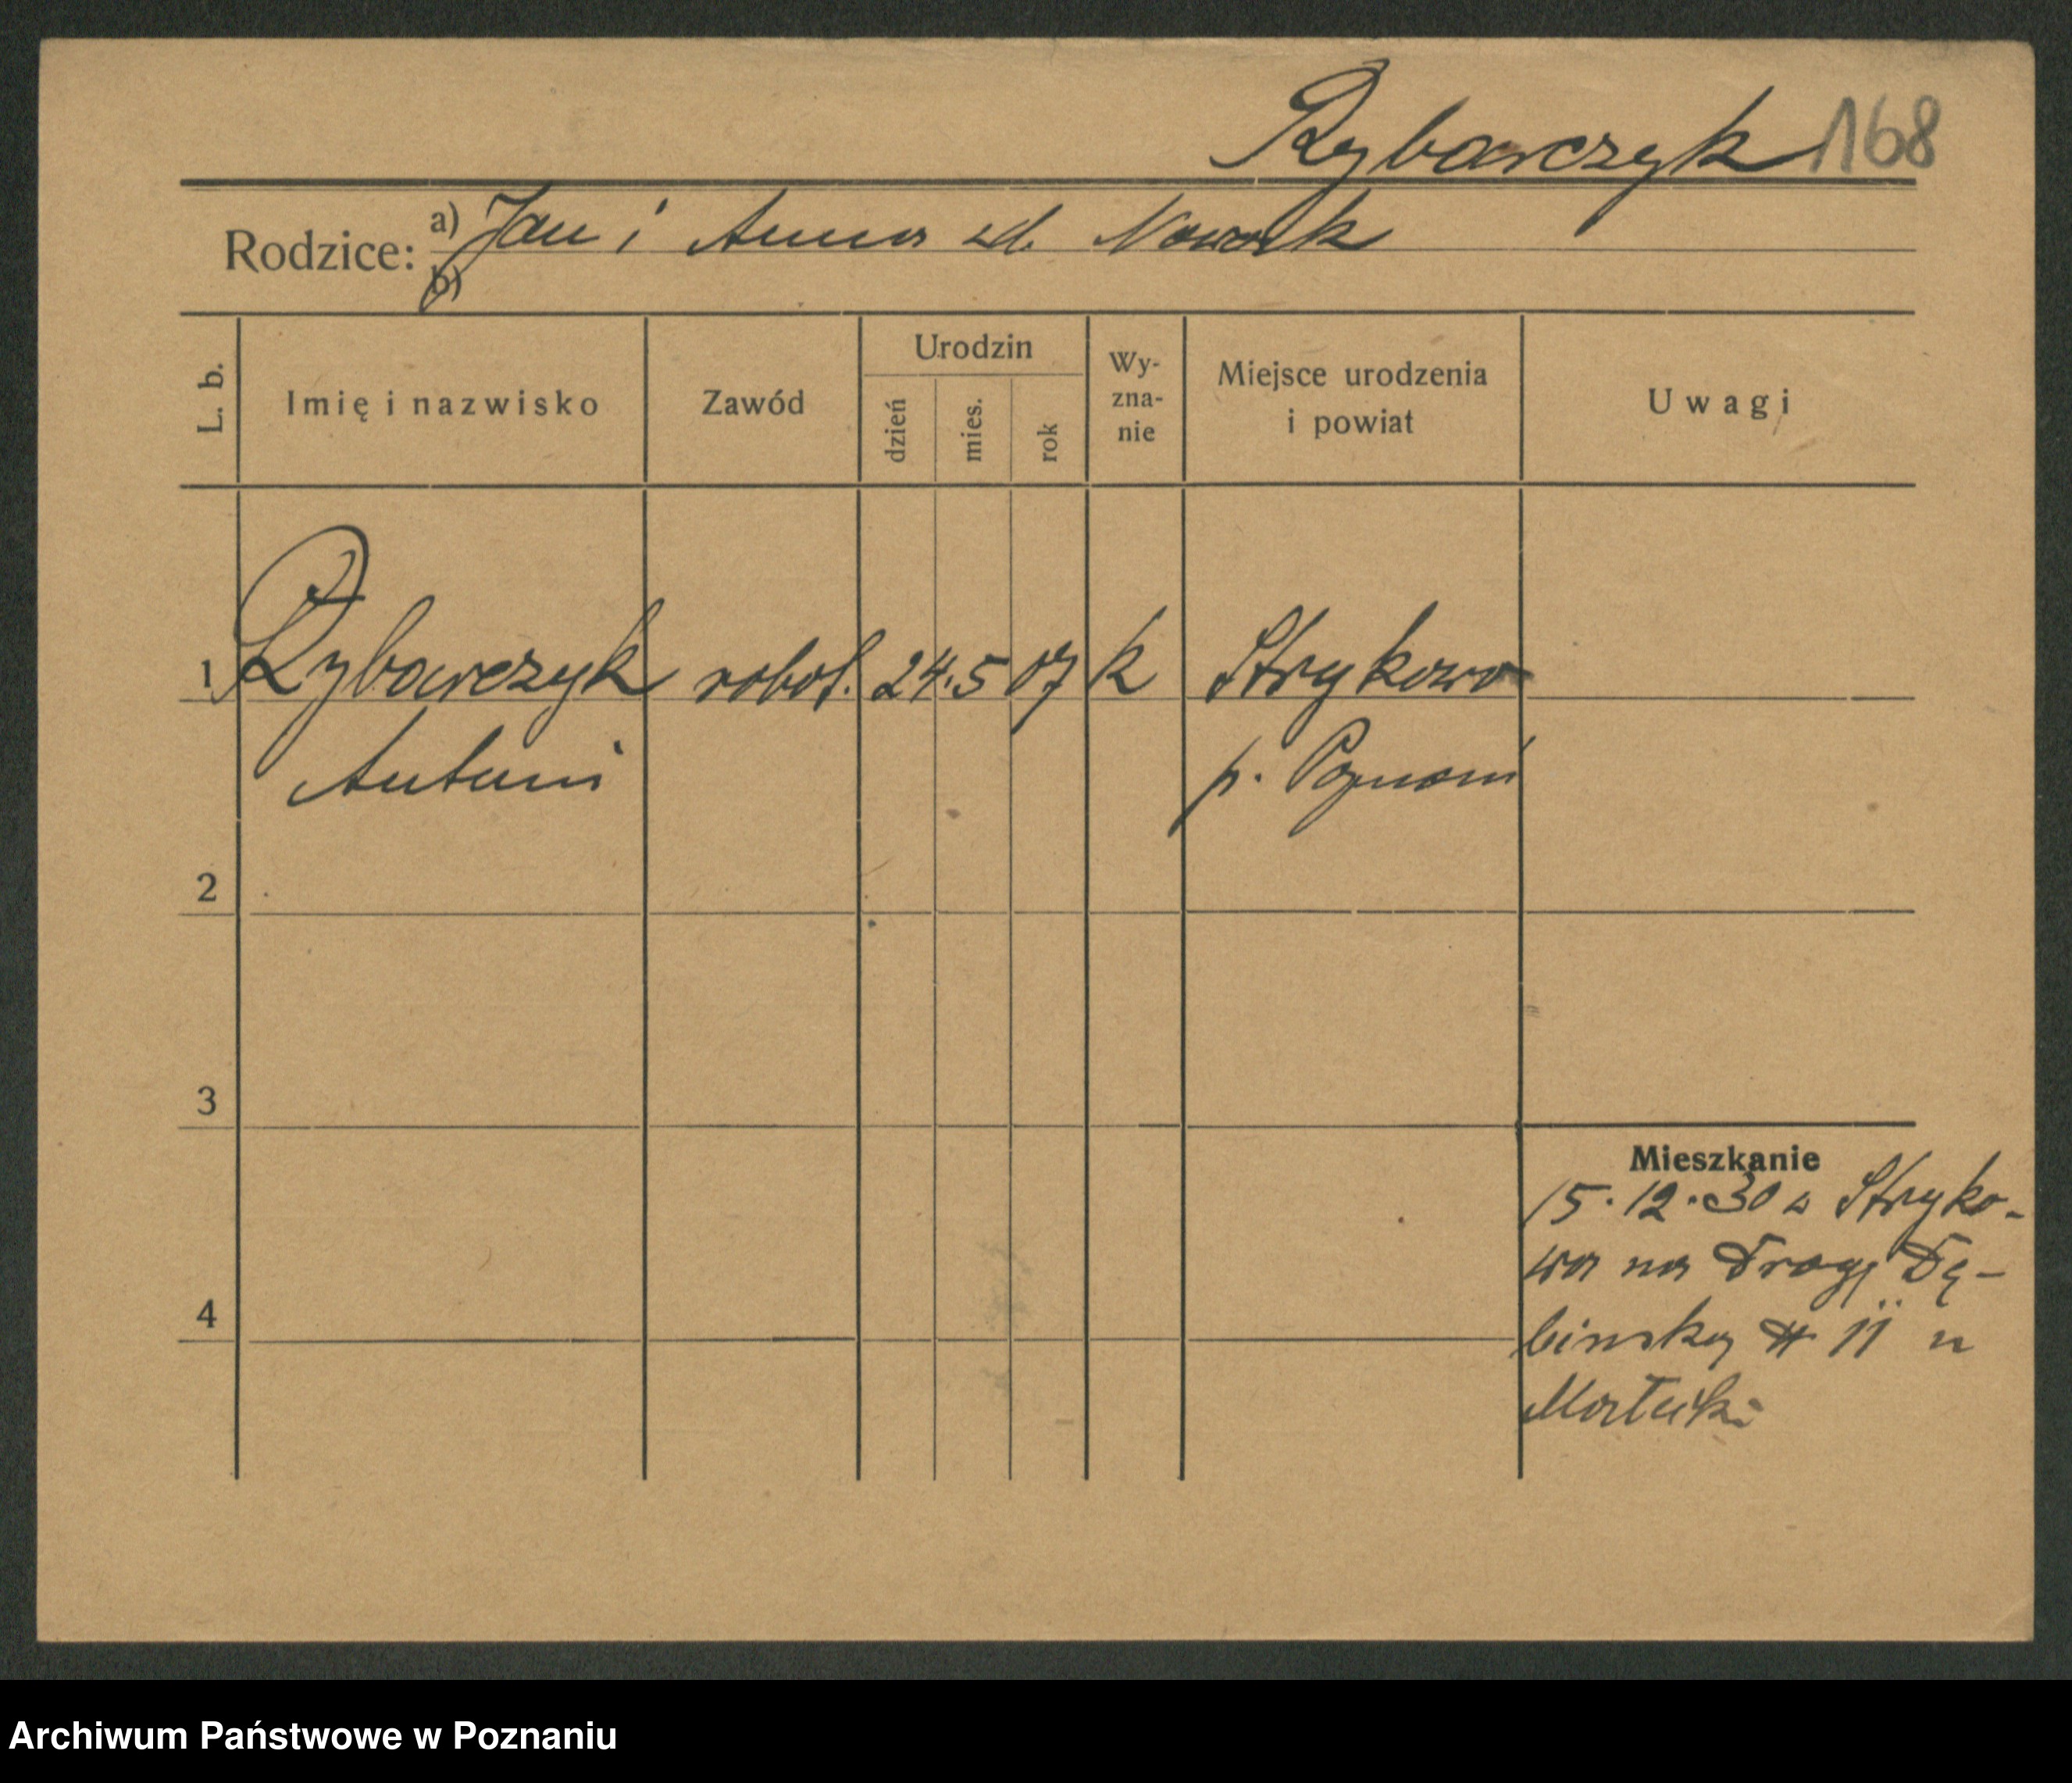 Rybarczyk 168
Rodzice: a) Jan i Anna zd. Nowak
b)
L. b. Imię i nazwisko Zawód Urodzin dzień mies. rok Wy-
zna-
nie Miejsce urodzenia
i powiat Uwagi
1 Rybarczyk robot. 24. 5 07 k Strykowo
Antoni p. Poznań
2
3
Mieszkanie
15.12.30 z Stryko-
wa na Drogę Dę-
4
bińską # 11 u
Archiwum Państwowe w Poznaniu